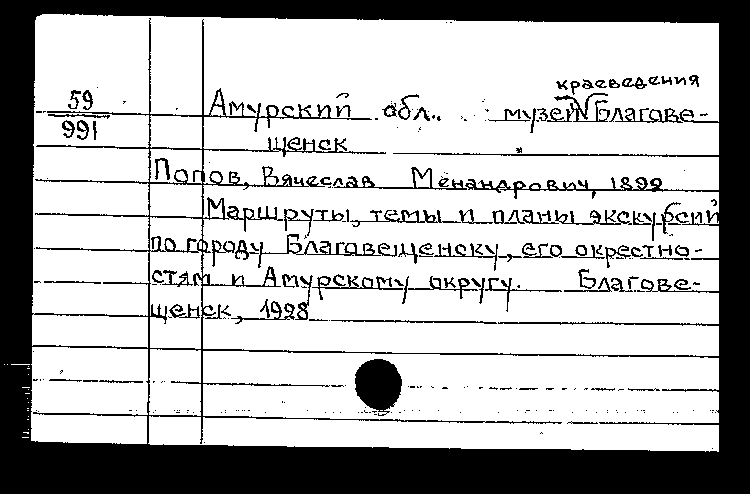 краеведения
59 Амурский обл. музей Благове-
991
щенск
Попов, Вячеслав Менандрович, 1892
Маршруты, темы и планы экскурсий
по городу Благовещенску, его окрестно-
стям и Амурскому округу. Благове-
щенск, 1928